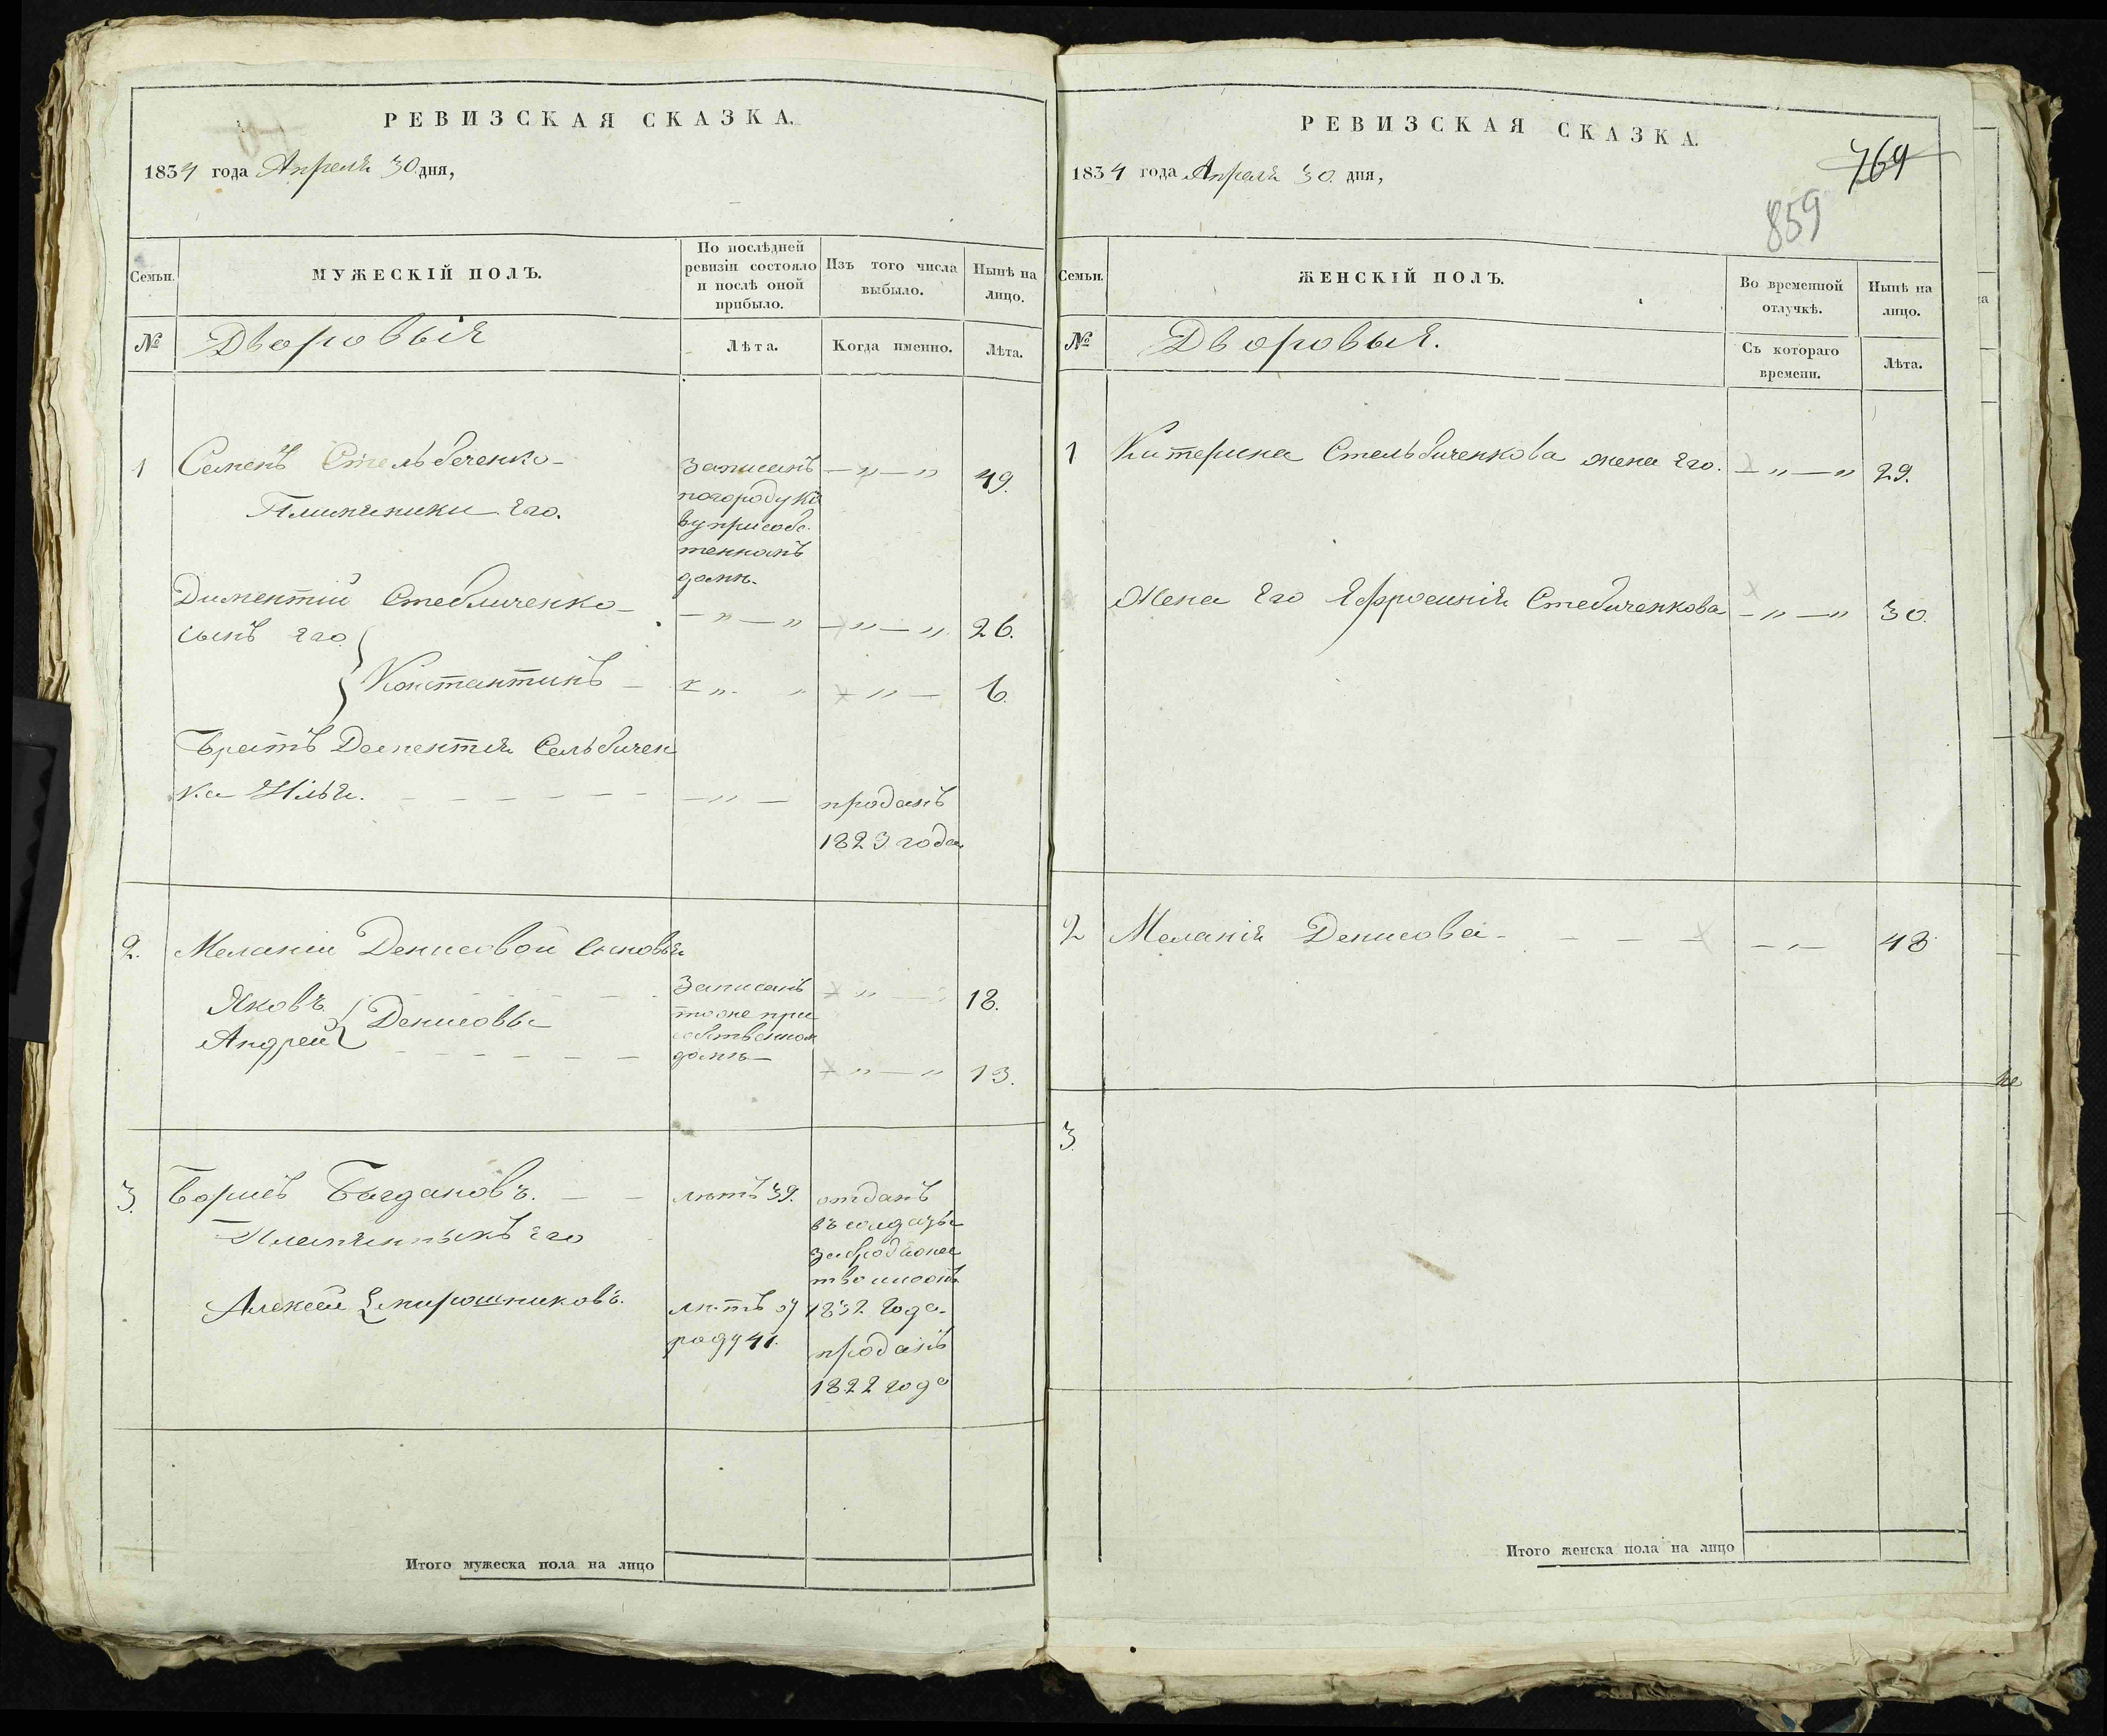 РЕВИЗСКАЯ СКАЗКА.
1834 года Апреля 30 дня,
Семьи.
МУЖЕСКІЙ ПОЛЪ.
По послѣдней ревизіи состояло и послѣ оной прибыло.
Изъ того числа выбыло.
Нынѣ на лицо.
№
Дворовыя
Лѣта.
Когда именно.
Лѣта.
1 Семенъ Стельбченко записанъ 49.
Племяники его. погороду Кі
ву при собс
твенномъ
Диментій Стебличенко домѣ
сынъ его 26.
Константинъ 6
Братъ Дементія Сельбичен
ка Илья. проданъ
1823 года
2. Меланіи Денисовой сыновья
Яковъ Денисовы записанъ 18.
Андрей тоже при
собственном
домѣ 13.
3. Борисъ Багдановъ. лѣтъ 39. отданъ
Племянныкъ его въ солдаты
Алексей Мирошниковъ. лѣтъ
1832 года
роду 41. проданъ
1822 года
Итого мужеска пола на лицо
РЕВИЗСКАЯ СКАЗКА.
1834 года Апреля 30 дня,
769
859
Семьи.
ЖЕНСКІЙ ПОЛЪ.
Во временной отлучкѣ.
Нынѣ на лицо.
№
Дворовыя.
Съ котораго времени.
Лѣта.
1 Китерина Стельбиченкова жена его. 29.
Жена его Ефросинія Стебиченкова 30.
2 Меланія Денисова 43
3.
Итого женска пола на лицо